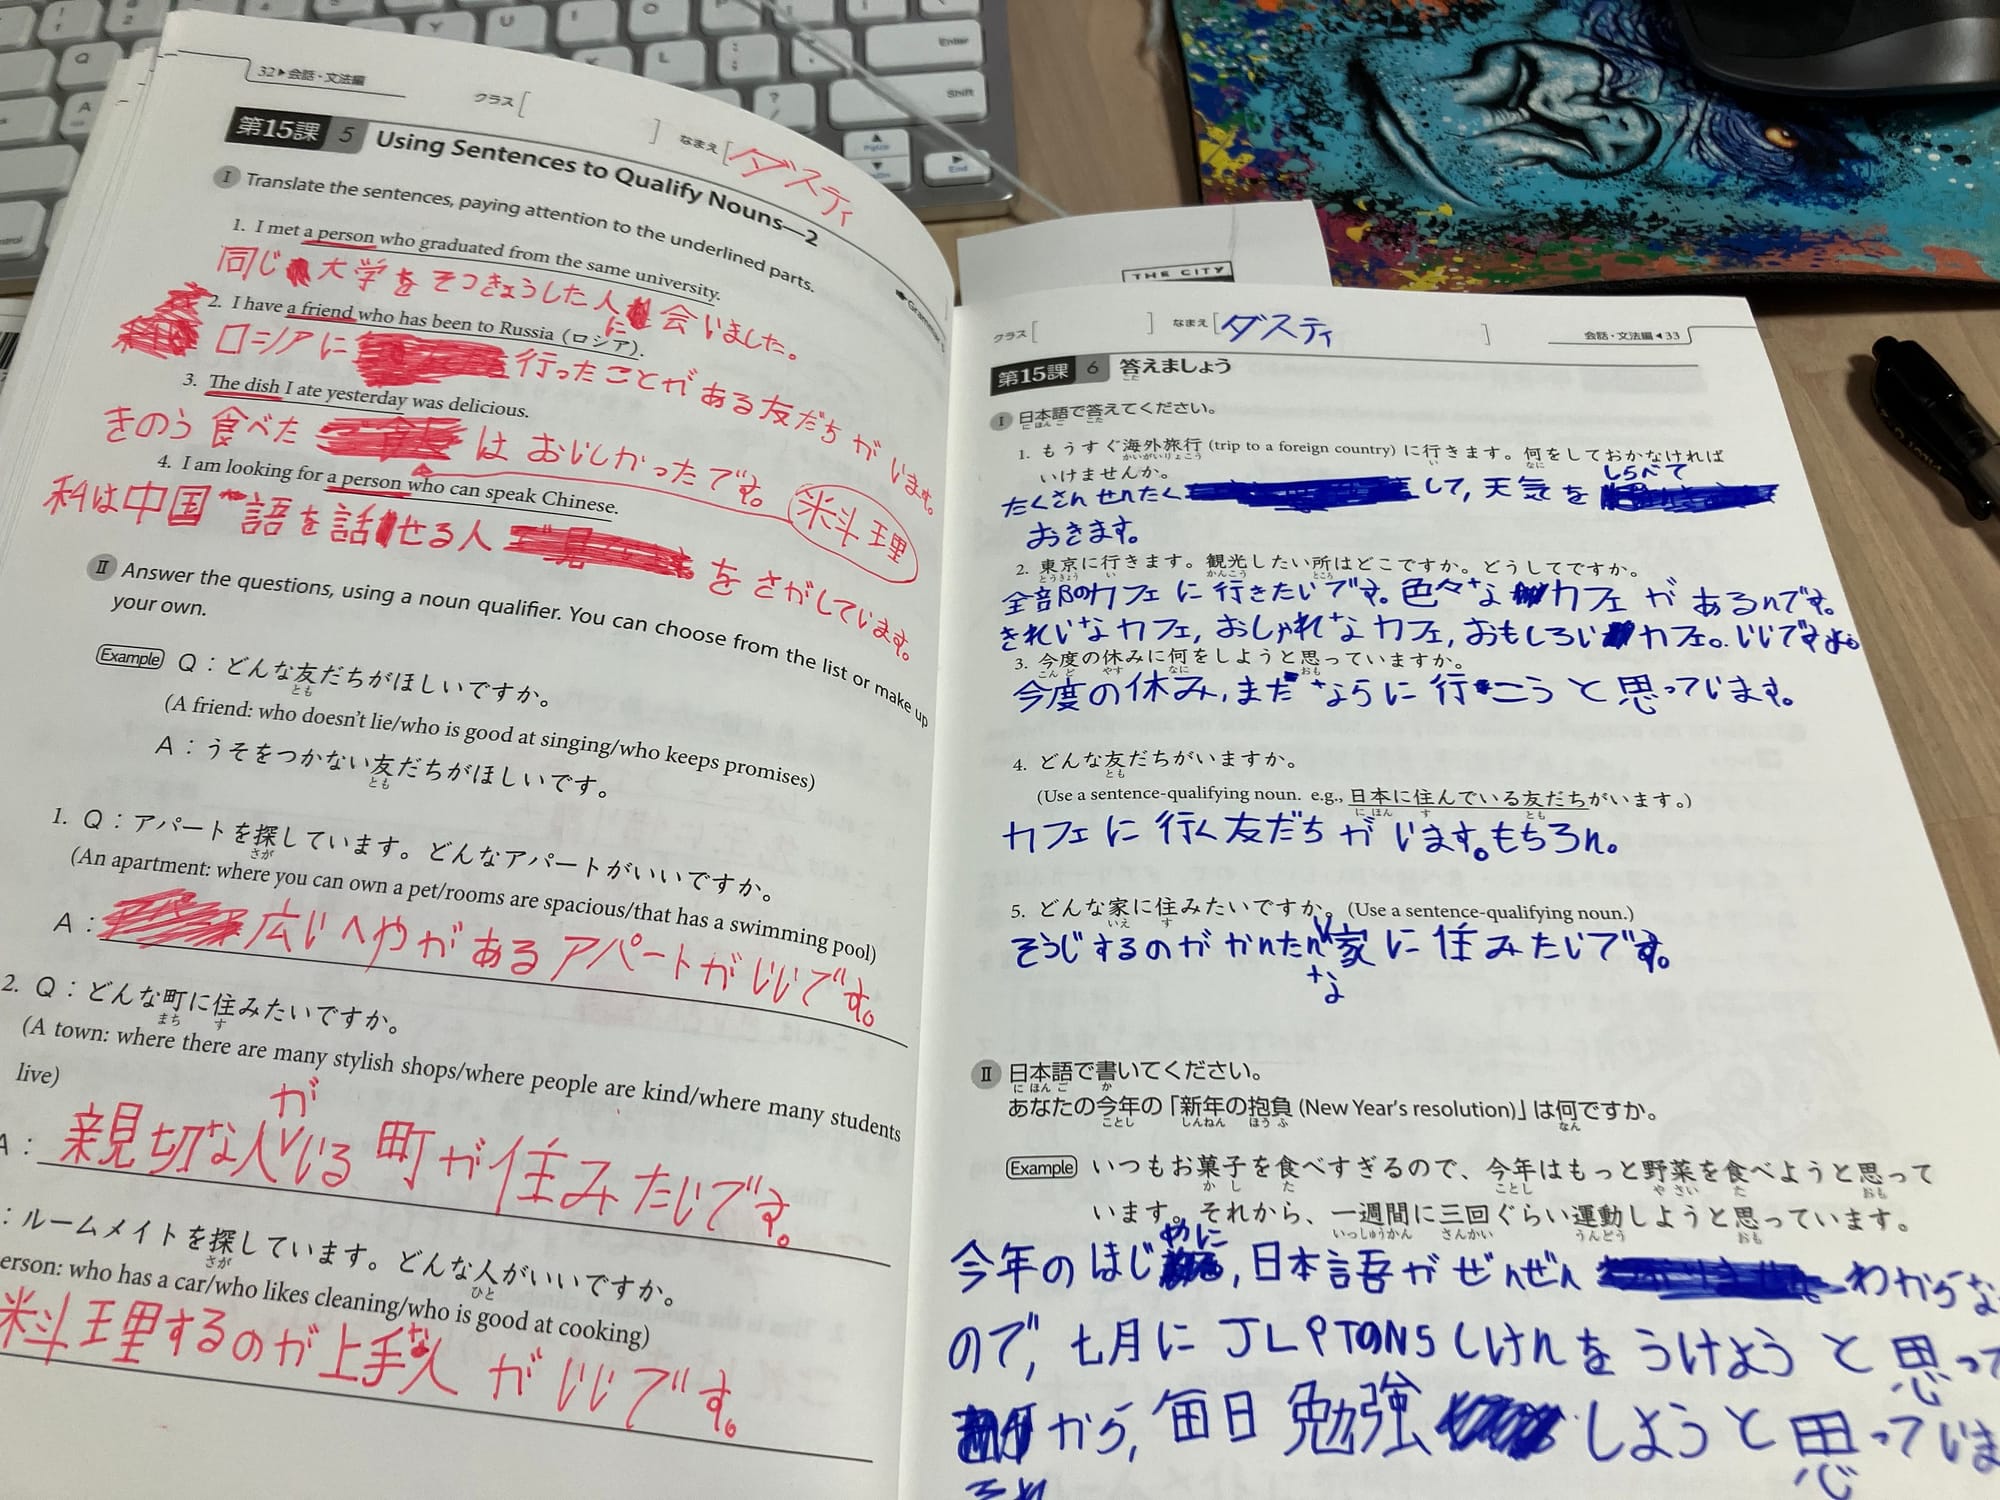 32▶会話・文法編
クラス[ ] なまえ[ダスティ
第15課 5 Using Sentences to Qualify Nouns—2
I Translate the sentences, paying attention to the underlined parts.
1. I met a person who graduated from the same university.
同じ大学をそつきょうした人に会いました。
2. I have a friend who has been to Russia (ロシア).
ロシアに行ったことがある友だちがいます。
3. The dish I ate yesterday was delicious.
きのう食べた料理はおいしかったです。
4. I am looking for a person who can speak Chinese.
私は中国語を話せる人をさがしています。
II Answer the questions, using a noun qualifier. You can choose from the list or make up
your own.
Example Q：どんな友だちがほしいですか。
とも
(A friend: who doesn't lie/who is good at singing/who keeps promises)
A：うそをつかない友だちがほしいです。
とも
1. Q：アパートを探しています。どんなアパートがいいですか。
さが
(An apartment: where you can own a pet/rooms are spacious/that has a swimming pool)
A： 広いへやがあるアパートがいいです。
2. Q：どんな町に住みたいですか。
まち す
(A town: where there are many stylish shops/where people are kind/where many students
live)
A： 親切な人がいる町が住みたいです。
：ルームメイトを探しています。どんな人がいいですか。
さが ひと
erson: who has a car/who likes cleaning/who is good at cooking)
料理するのが上手な人がいいです。
THE CITY
クラス[ ] なまえ[ダスティ ] 会話・文法編◀33
第15課 6 答えましょう
こた
I 日本語で答えてください。
にほんご こた
1. もうすぐ海外旅行 (trip to a foreign country) に行きます。何をしておかなければ
かいがいりょこう い なに
いけませんか。
たくさんせんたくして,天気をしらべて
おきます。
2. 東京に行きます。観光したい所はどこですか。どうしてですか。
とうきょう い かんこう ところ
全部のカフェに行きたいです。色々なカフェがあるんです。
きれいなカフェ,おしゃれなカフェ,おもしろいカフェ。いいですよ。
3. 今度の休みに何をしようと思っていますか。
こんど やす なに おも
今度の休み,まだならに行こうと思っています。
4. どんな友だちがいますか。
とも
(Use a sentence-qualifying noun. e.g., 日本に住んでいる友だちがいます。)
にほん す とも
カフェに行く友だちがいます。もちろん。
5. どんな家に住みたいですか。(Use a sentence-qualifying noun.)
いえ す
そうじするのがかんたんな家に住みたいです。
II 日本語で書いてください。
にほんご か
あなたの今年の「新年の抱負 (New Year's resolution)」は何ですか。
ことし しんねん ほうふ なん
Example いつもお菓子を食べすぎるので、今年はもっと野菜を食べようと思って
かし た ことし やさい た おも
います。それから、一週間に三回ぐらい運動しようと思っています。
いっしゅうかん さんかい うんどう おも
今年のはじめに,日本語がぜんぜんわからな
ので,七月にJLPTのN5しけんをうけようと思って
から,毎日勉強しようと思っていま